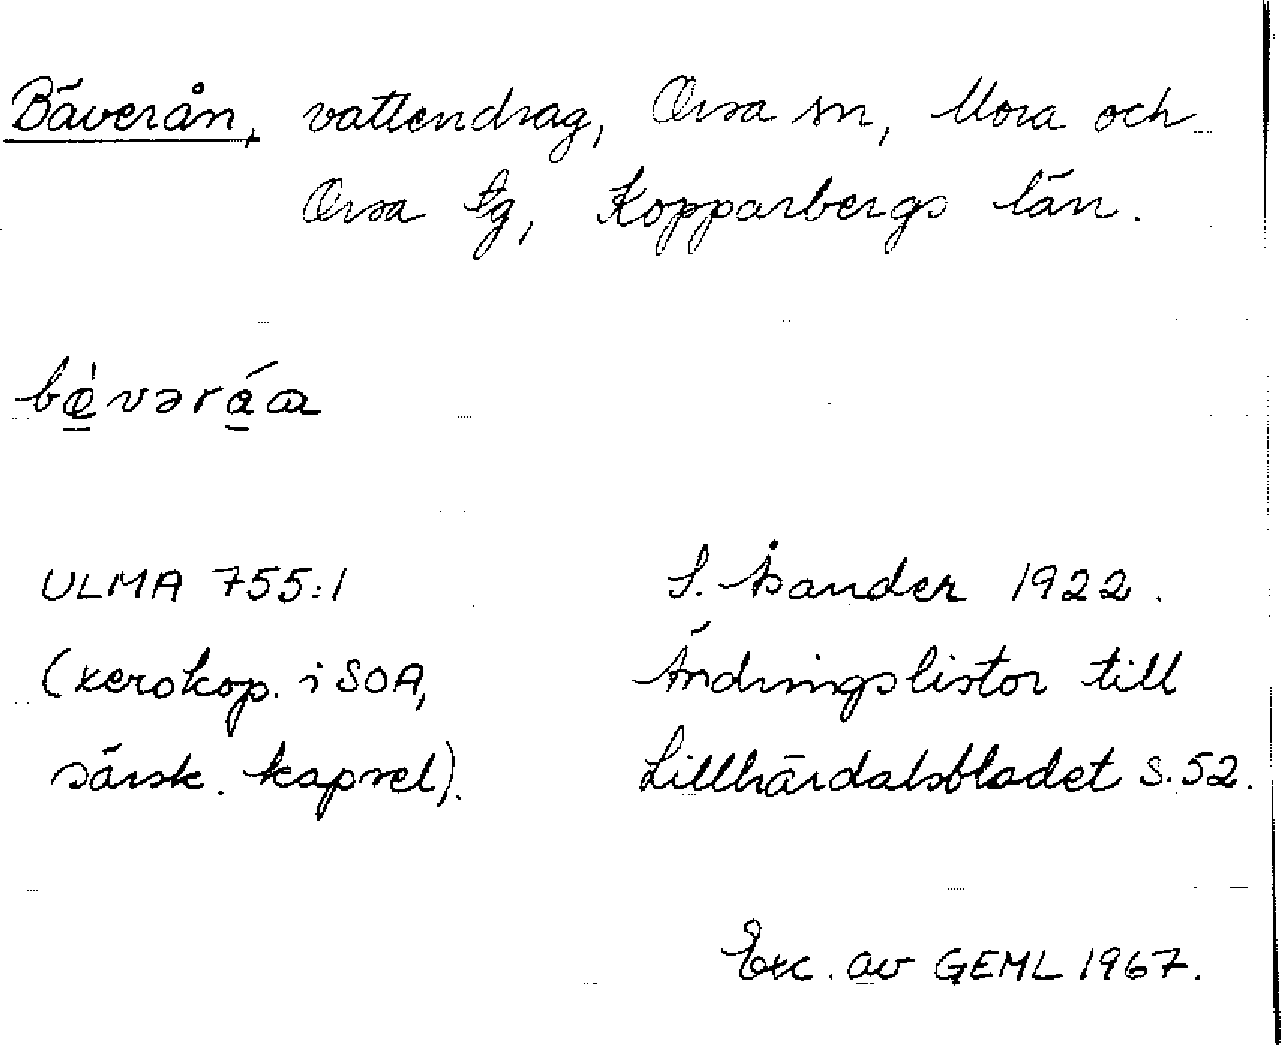 Bäverån, vattendrag, Orsa sn, Mora och
Orsa tg, Kopparbergs län.
bæ̀vəráa
ULMA 755:1
(xerokop. i SOA,
särsk. kapsel).
S. Åsander 1922.
Ändringslistor till
Lillhärdalsbladet s. 52.
Exc. av GEML 1967.